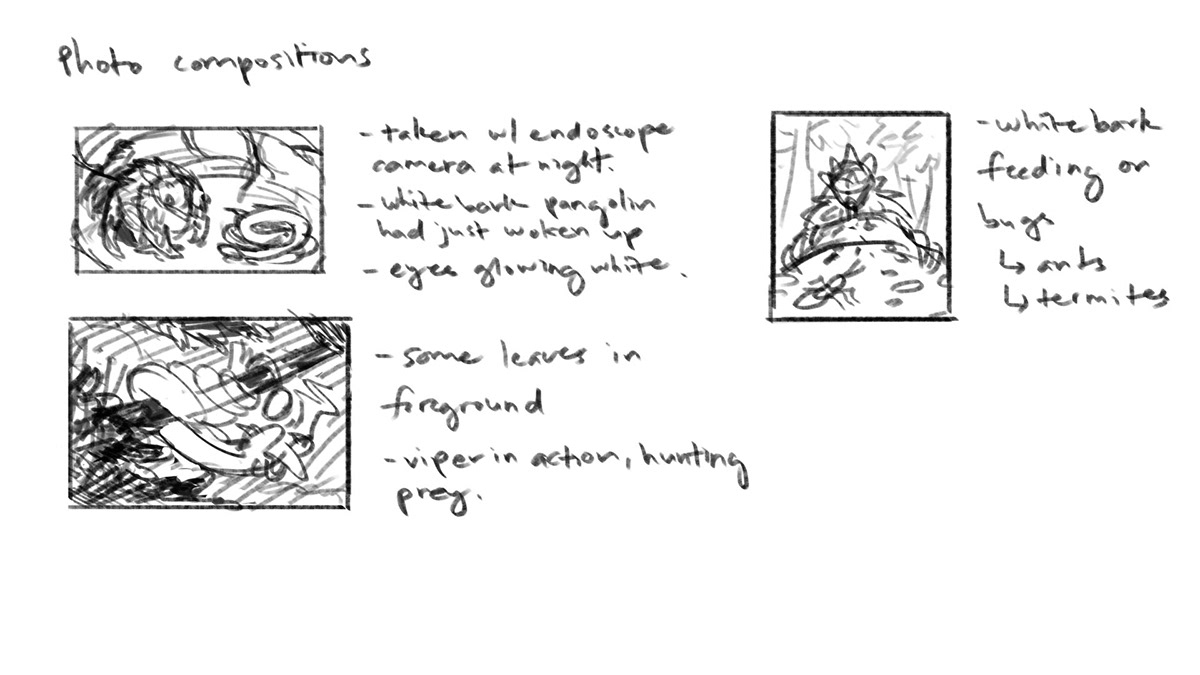 Photo compositions
- taken w/ endoscope
camera at night.
- white bark pangolin
had just woken up
- eyes glowing white.
- some leaves in
foreground
- viper in action, hunting
prey.
- white bark
feeding on
bugs
↳ ants
↳ termites